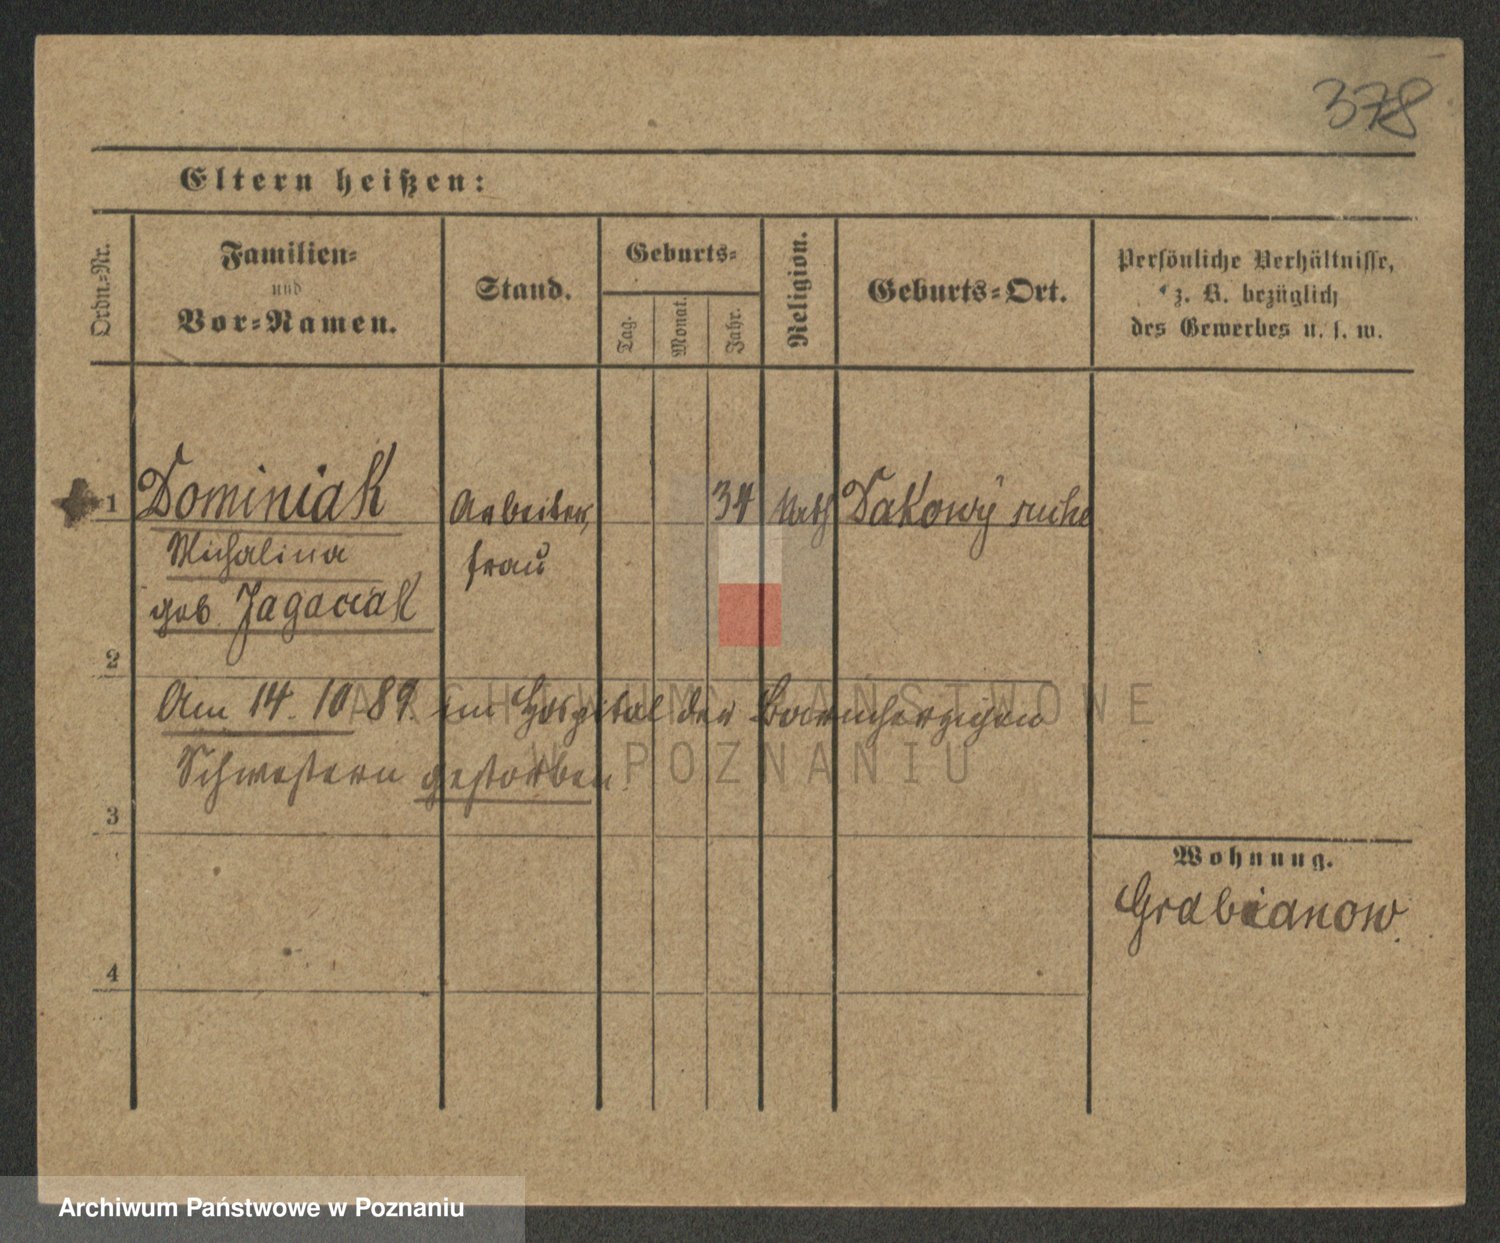 378
Eltern heißen:
Ordn.-Nr.
Familien-
und
Vor-Namen.
Stand.
Geburts-
Tag.
Monat.
Jahr.
Religion.
Geburts-Ort.
Persönliche Verhältnisse,
z. B. bezüglich
des Gewerbes u. s. w.
1 Dominiak Arbeiter, 34 Kath Dakowy
Michalina frau
geb. Jagaciak
2
Am 14. 10 89 im Hospital der Barmherzigen
Schwestern gestorben.
3
Wohnung.
Grabianow.
4
ARCHIWUM PAŃSTWOWE
W POZNANIU
Archiwum Państwowe w Poznaniu